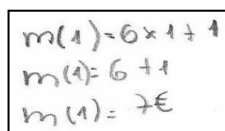 m(1)=6×1+1
m(1)=6+1
m(1)=7€